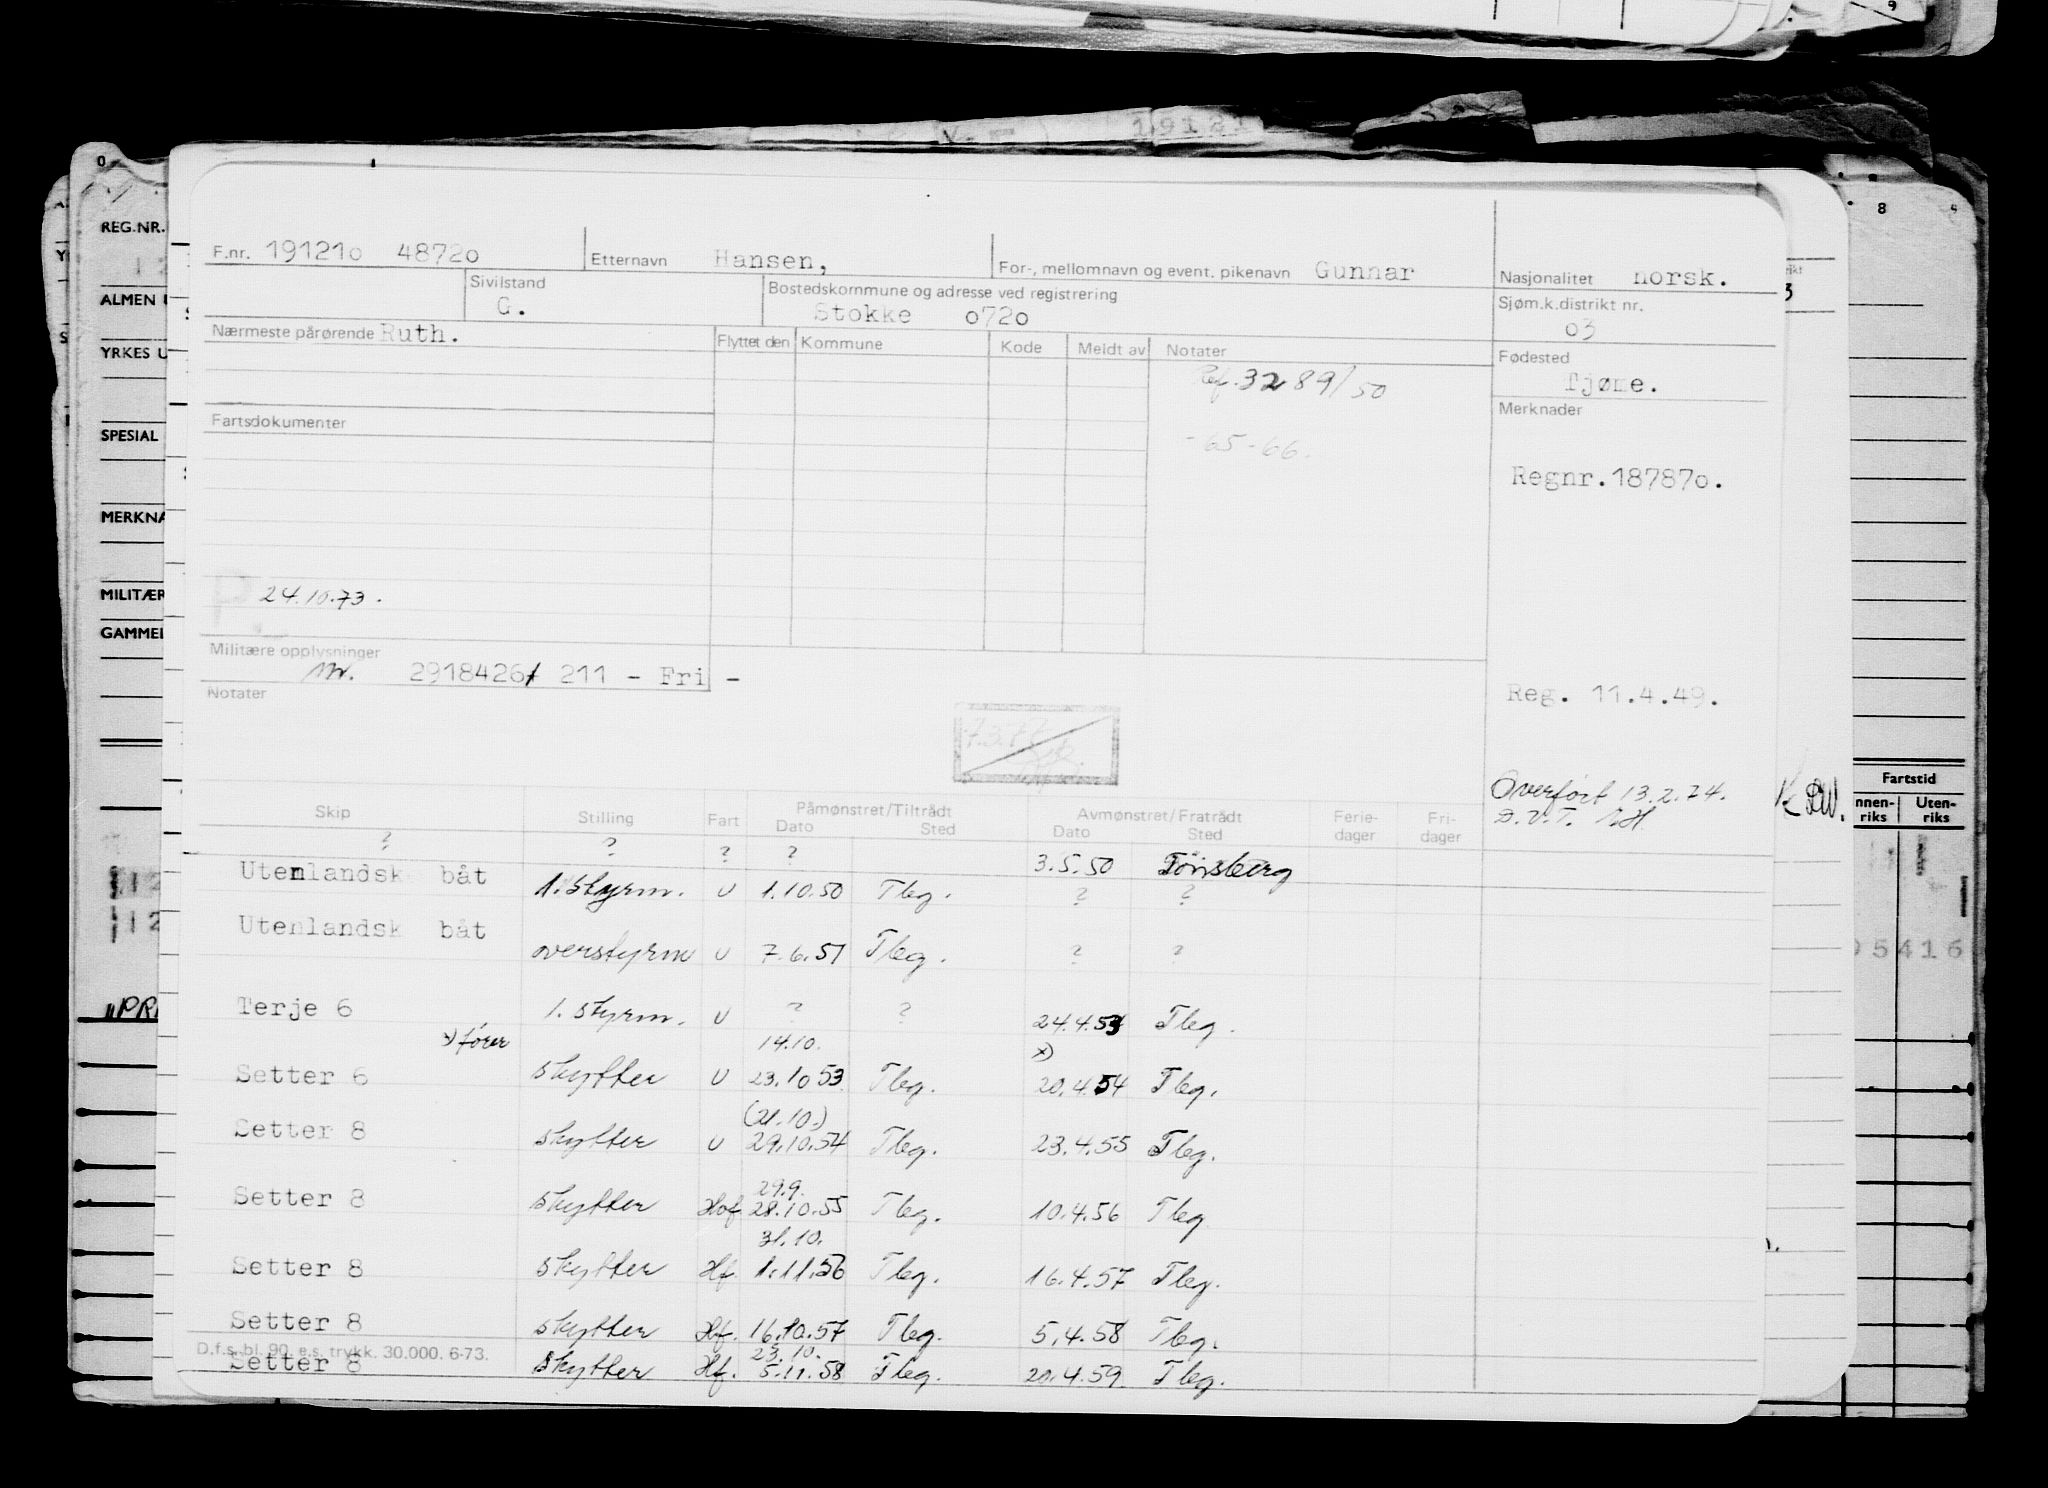 F.nr. 19121o 4872o Etternavn Hansen, For-, mellomnavn og event. pikenavn Gunnar Nasjonalitet norsk.
Sivilstand G. Bostedskommune og adresse ved registrering Stokke o72o Sjøm.k.distrikt nr. o3
Nærmeste pårørende Ruth. Flyttet den Kommune Kode Meldt av Notater Fødested Tjøme.
Ref. 3289/50
Fartsdokumenter Merknader
-65-66.
Regnr.18787o.
P 24.10.73.
Militære opplysninger
nr. 2918426/ 211 - Fri -
Notater
Reg. 11.4.49.
7.3.77
Overført 13.2.74.
D.V.T.
Skip Stilling Fart Påmønstret/Tiltrådt Dato Sted Avmønstret/Fratrådt Dato Sted Ferie-dager Fri-dager
? ? ? ? 3.5.50 Tönsberg
Utenlandsk båt 1. styrm. U 1.10.50 Tbg. ? ?
Utenlandsk båt overstyrm U 7.6.51 Tbg. ? ?
Terje 6 1. styrm. U ? ? 24.4.53 Tbg.
x) fører 14.10. x)
Setter 6 skytter U 23.10 53 Tbg. 20.4.54 Tbg.
(21.10.)
Setter 8 skytter U 29.10.54 Tbg. 23.4.55 Tbg.
29.9.
Setter 8 skytter Hof 28.10.55 Tbg. 10.4.56 Tbg
31.10.
Setter 8 skytter Hf. 1.11.56 Tbg. 16.4.57 Tbg.
Setter 8 skytter Hf. 16.10.57 Tbg. 5.4.58 Tbg.
D.f.s. bl. 90. e.s. trykk. 30.000. 6-73. 23.10.
Setter 8 skytter Hf. 5.11.58 Tbg. 20.4.59 Tbg.
REG.NR.
ALMEN
YRKES U
SPESIAL
MERKNA
MILITÆR
GAMMEL
"PR
Fartstid
nnen-riks Uten-riks
5416